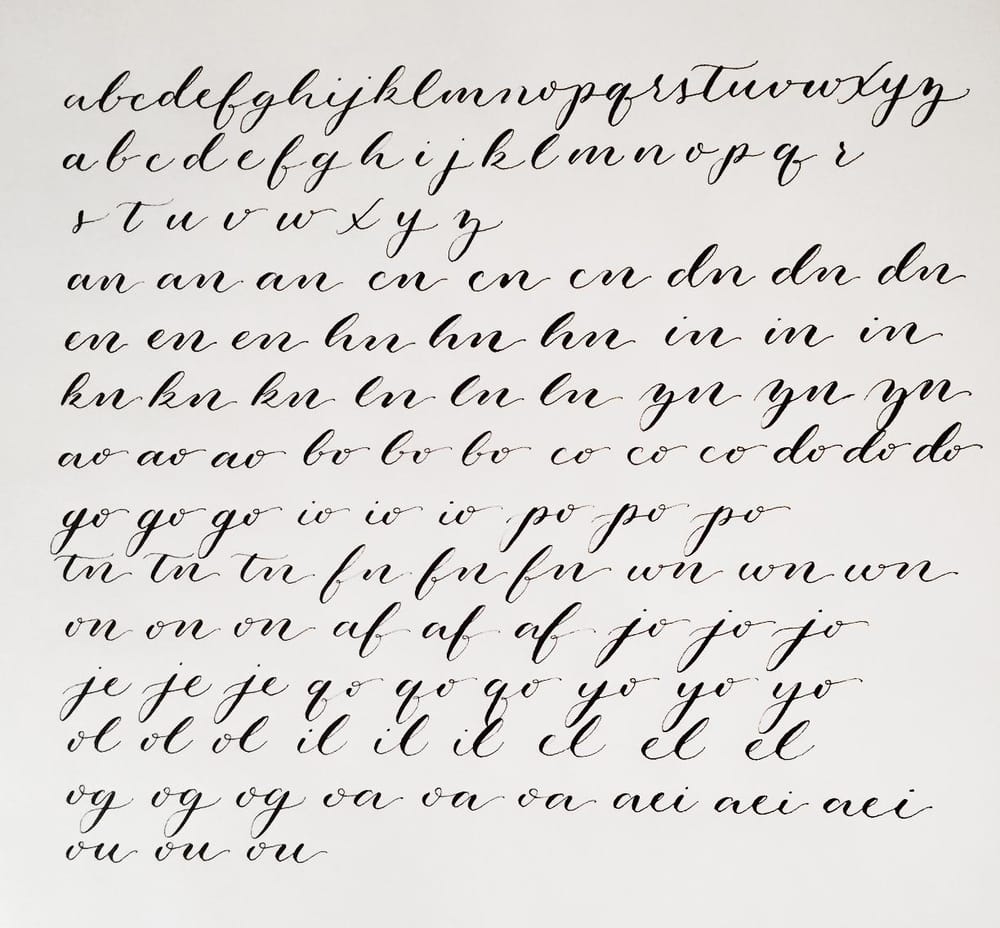 abcdefghijklmnopqrstuvwxyz
a b c d e f g h i j k l m n o p q r
s t u v w x y z
an an an cn cn cn dn dn dn
en en en hn hn hn in in in
kn kn kn ln ln ln yn yn yn
ao ao ao bo bo bo co co co do do do
go go go io io io po po po
tn tn tn fn fn fn wn wn wn
on on on af af af jo jo jo
je je je qo qo qo yo yo yo
ol ol ol il il il el el el
og og og oa oa oa aei aei aei
ou ou ou